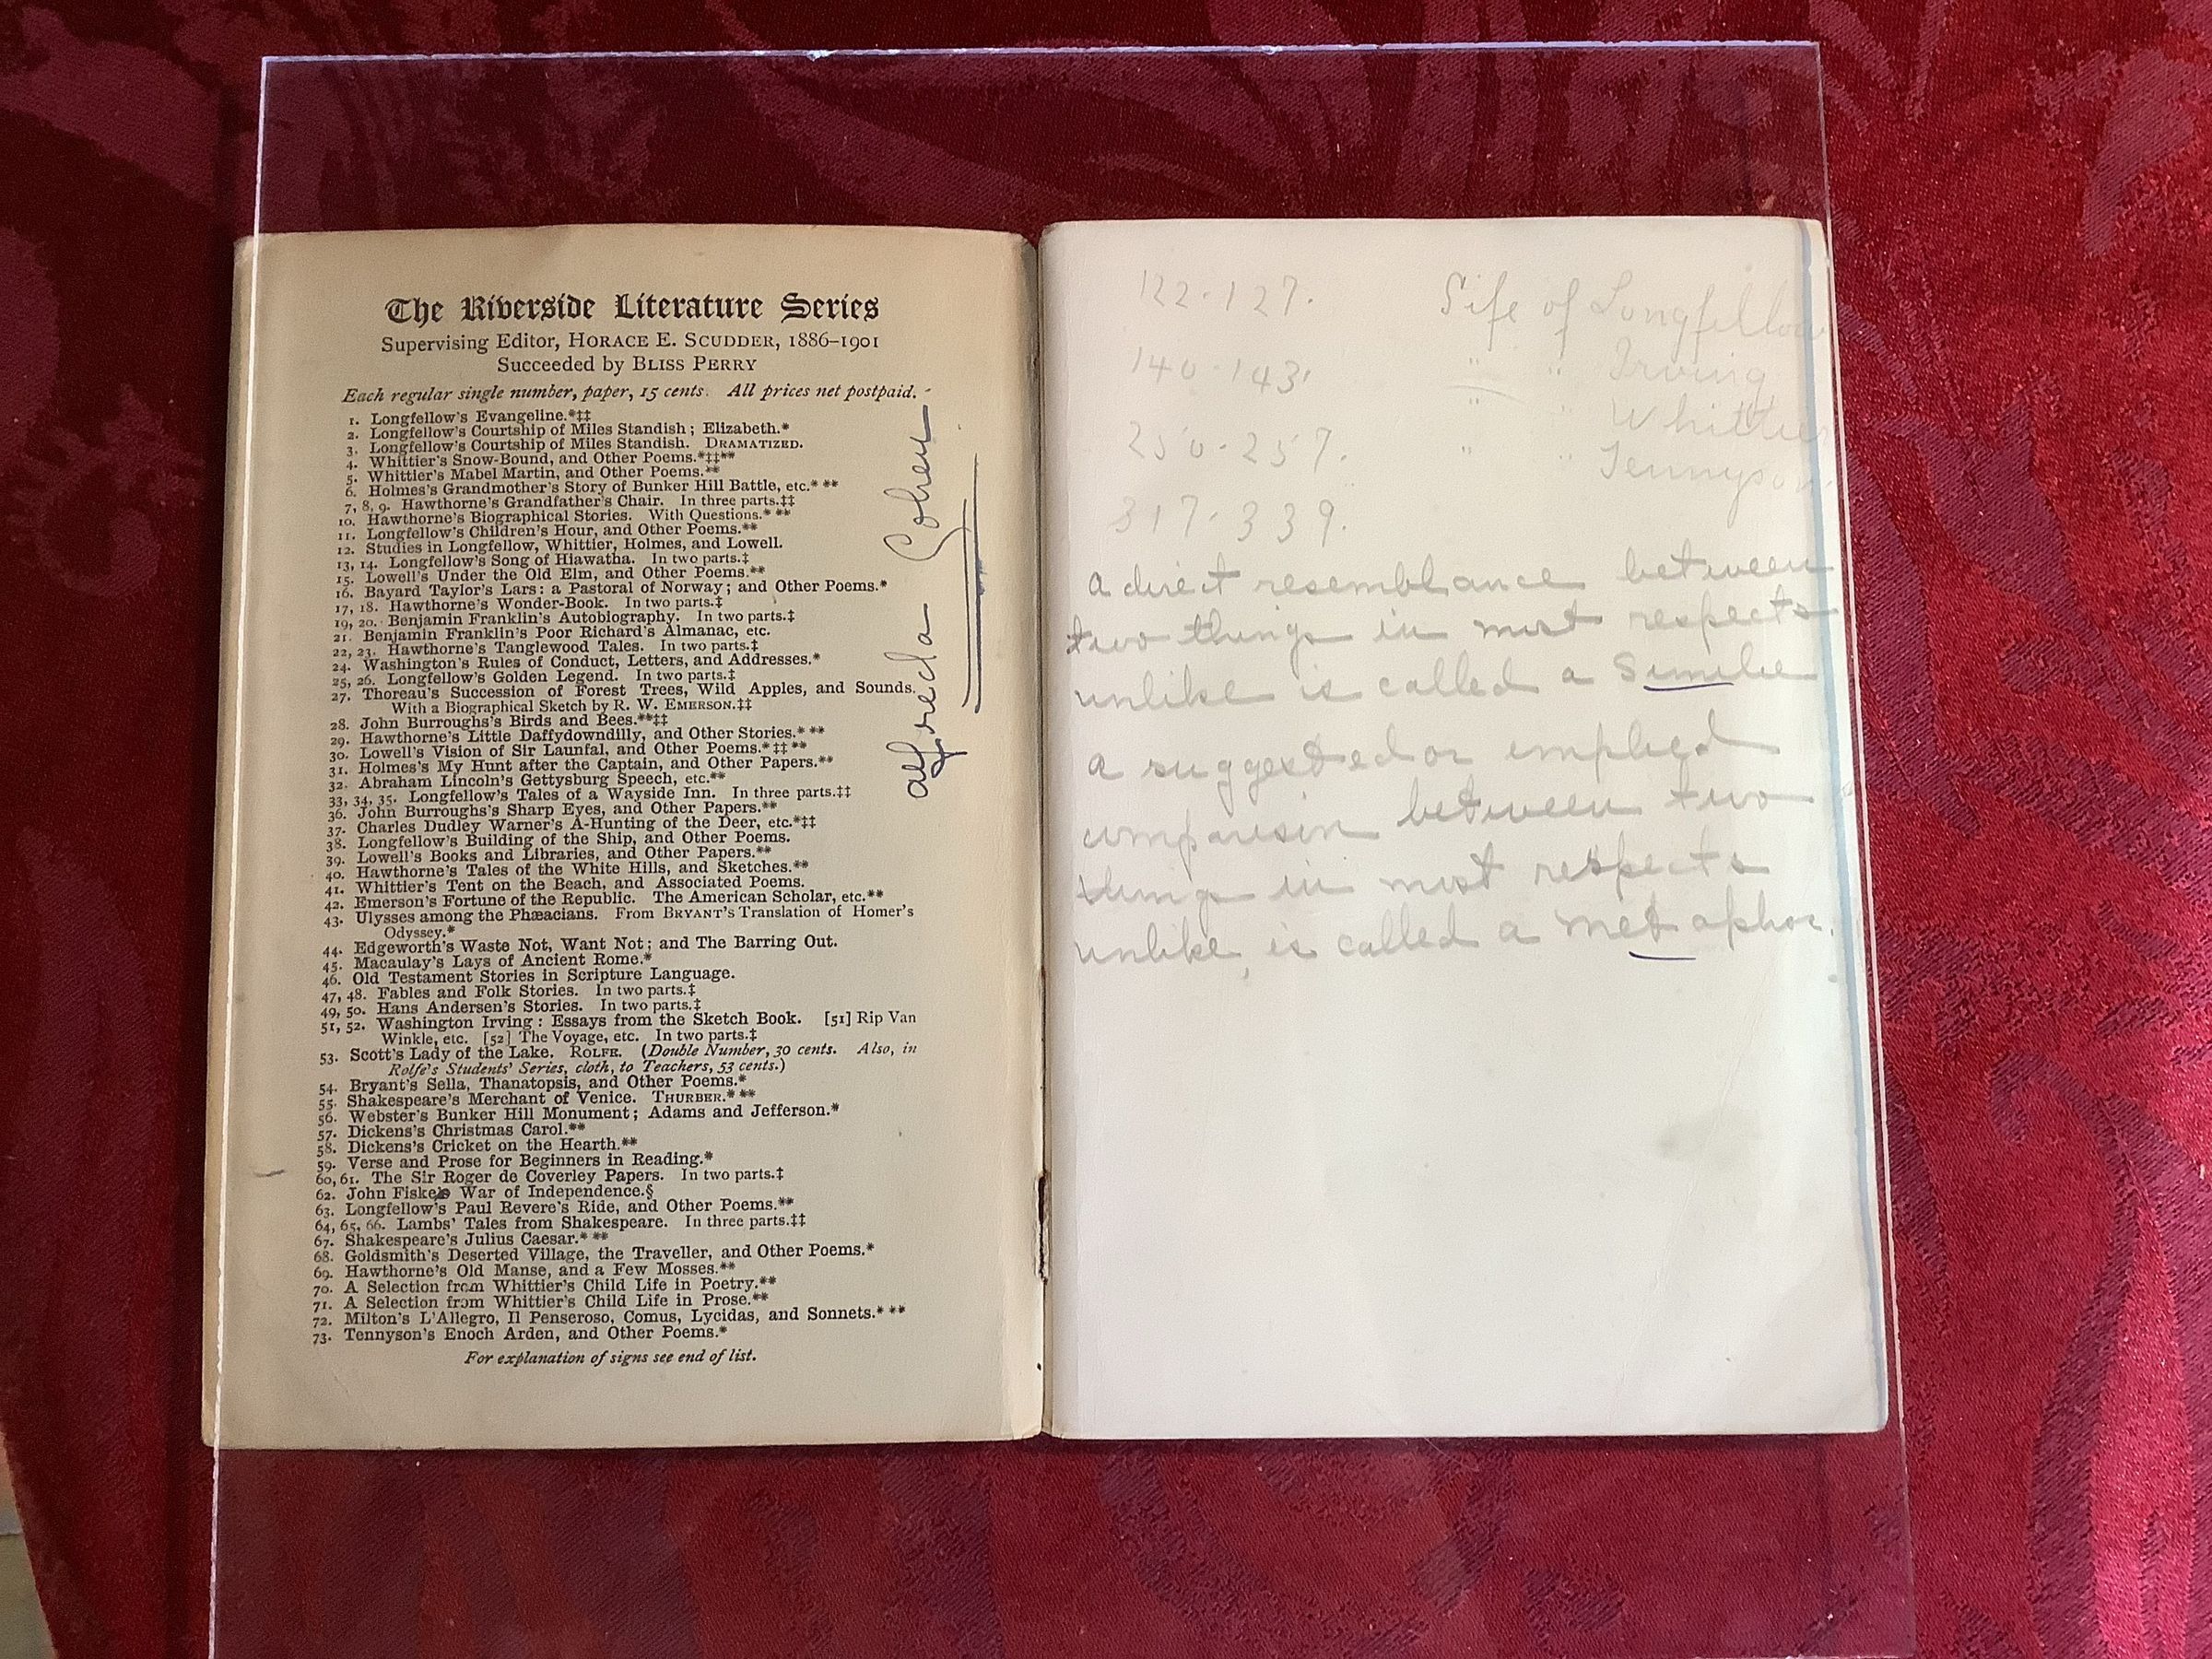 The Riverside Literature Series
Supervising Editor, HORACE E. SCUDDER, 1886–1901
Succeeded by BLISS PERRY
Each regular single number, paper, 15 cents. All prices net postpaid.
1. Longfellow's Evangeline.*‡‡
2. Longfellow's Courtship of Miles Standish; Elizabeth.*
3. Longfellow's Courtship of Miles Standish. DRAMATIZED.
4. Whittier's Snow-Bound, and Other Poems.*‡‡**
5. Whittier's Mabel Martin, and Other Poems.**
6. Holmes's Grandmother's Story of Bunker Hill Battle, etc.* **
7, 8, 9. Hawthorne's Grandfather's Chair. In three parts.‡‡
10. Hawthorne's Biographical Stories. With Questions.* **
11. Longfellow's Children's Hour, and Other Poems.**
12. Studies in Longfellow, Whittier, Holmes, and Lowell.
13, 14. Longfellow's Song of Hiawatha. In two parts.‡
15. Lowell's Under the Old Elm, and Other Poems.**
16. Bayard Taylor's Lars: a Pastoral of Norway; and Other Poems.*
17, 18. Hawthorne's Wonder-Book. In two parts.‡
19, 20. Benjamin Franklin's Autobiography. In two parts.‡
21. Benjamin Franklin's Poor Richard's Almanac, etc.
22, 23. Hawthorne's Tanglewood Tales. In two parts.‡
24. Washington's Rules of Conduct, Letters, and Addresses.*
25, 26. Longfellow's Golden Legend. In two parts.‡
27. Thoreau's Succession of Forest Trees, Wild Apples, and Sounds.
With a Biographical Sketch by R. W. EMERSON.‡‡
28. John Burroughs's Birds and Bees.**‡‡
29. Hawthorne's Little Daffydowndilly, and Other Stories.* **
30. Lowell's Vision of Sir Launfal, and Other Poems.*‡‡ **
31. Holmes's My Hunt after the Captain, and Other Papers.**
32. Abraham Lincoln's Gettysburg Speech, etc.**
33, 34, 35. Longfellow's Tales of a Wayside Inn. In three parts.‡‡
36. John Burroughs's Sharp Eyes, and Other Papers.**
37. Charles Dudley Warner's A-Hunting of the Deer, etc.*‡‡
38. Longfellow's Building of the Ship, and Other Poems.
39. Lowell's Books and Libraries, and Other Papers.**
40. Hawthorne's Tales of the White Hills, and Sketches.**
41. Whittier's Tent on the Beach, and Associated Poems.
42. Emerson's Fortune of the Republic. The American Scholar, etc.**
43. Ulysses among the Phæacians. From BRYANT'S Translation of Homer's
Odyssey.*
44. Edgeworth's Waste Not, Want Not; and The Barring Out.
45. Macaulay's Lays of Ancient Rome.*
46. Old Testament Stories in Scripture Language.
47, 48. Fables and Folk Stories. In two parts.‡
49, 50. Hans Andersen's Stories. In two parts.‡
51, 52. Washington Irving: Essays from the Sketch Book. [51] Rip Van
Winkle, etc. [52] The Voyage, etc. In two parts.‡
53. Scott's Lady of the Lake. ROLFE. (Double Number, 30 cents. Also, in
Rolfe's Students' Series, cloth, to Teachers, 53 cents.)
54. Bryant's Sella, Thanatopsis, and Other Poems.*
55. Shakespeare's Merchant of Venice. THURBER.* **
56. Webster's Bunker Hill Monument; Adams and Jefferson.*
57. Dickens's Christmas Carol.**
58. Dickens's Cricket on the Hearth.**
59. Verse and Prose for Beginners in Reading.*
60, 61. The Sir Roger de Coverley Papers. In two parts.‡
62. John Fiske's War of Independence.§
63. Longfellow's Paul Revere's Ride, and Other Poems.**
64, 65, 66. Lambs' Tales from Shakespeare. In three parts.‡‡
67. Shakespeare's Julius Caesar.* **
68. Goldsmith's Deserted Village, the Traveller, and Other Poems.*
69. Hawthorne's Old Manse, and a Few Mosses.**
70. A Selection from Whittier's Child Life in Poetry.**
71. A Selection from Whittier's Child Life in Prose.**
72. Milton's L'Allegro, Il Penseroso, Comus, Lycidas, and Sonnets.* **
73. Tennyson's Enoch Arden, and Other Poems.*
For explanation of signs see end of list.
Alfreda Cohen
122-127. Life of Longfellow
140-143. " " Irving
" " Whittier
250-257. " " Tennyson
317-339.
a direct resemblance between
two things in most respects
unlike is called a Similie
a suggested or implied
comparison between two
things in most respects
unlike, is called a metaphor.